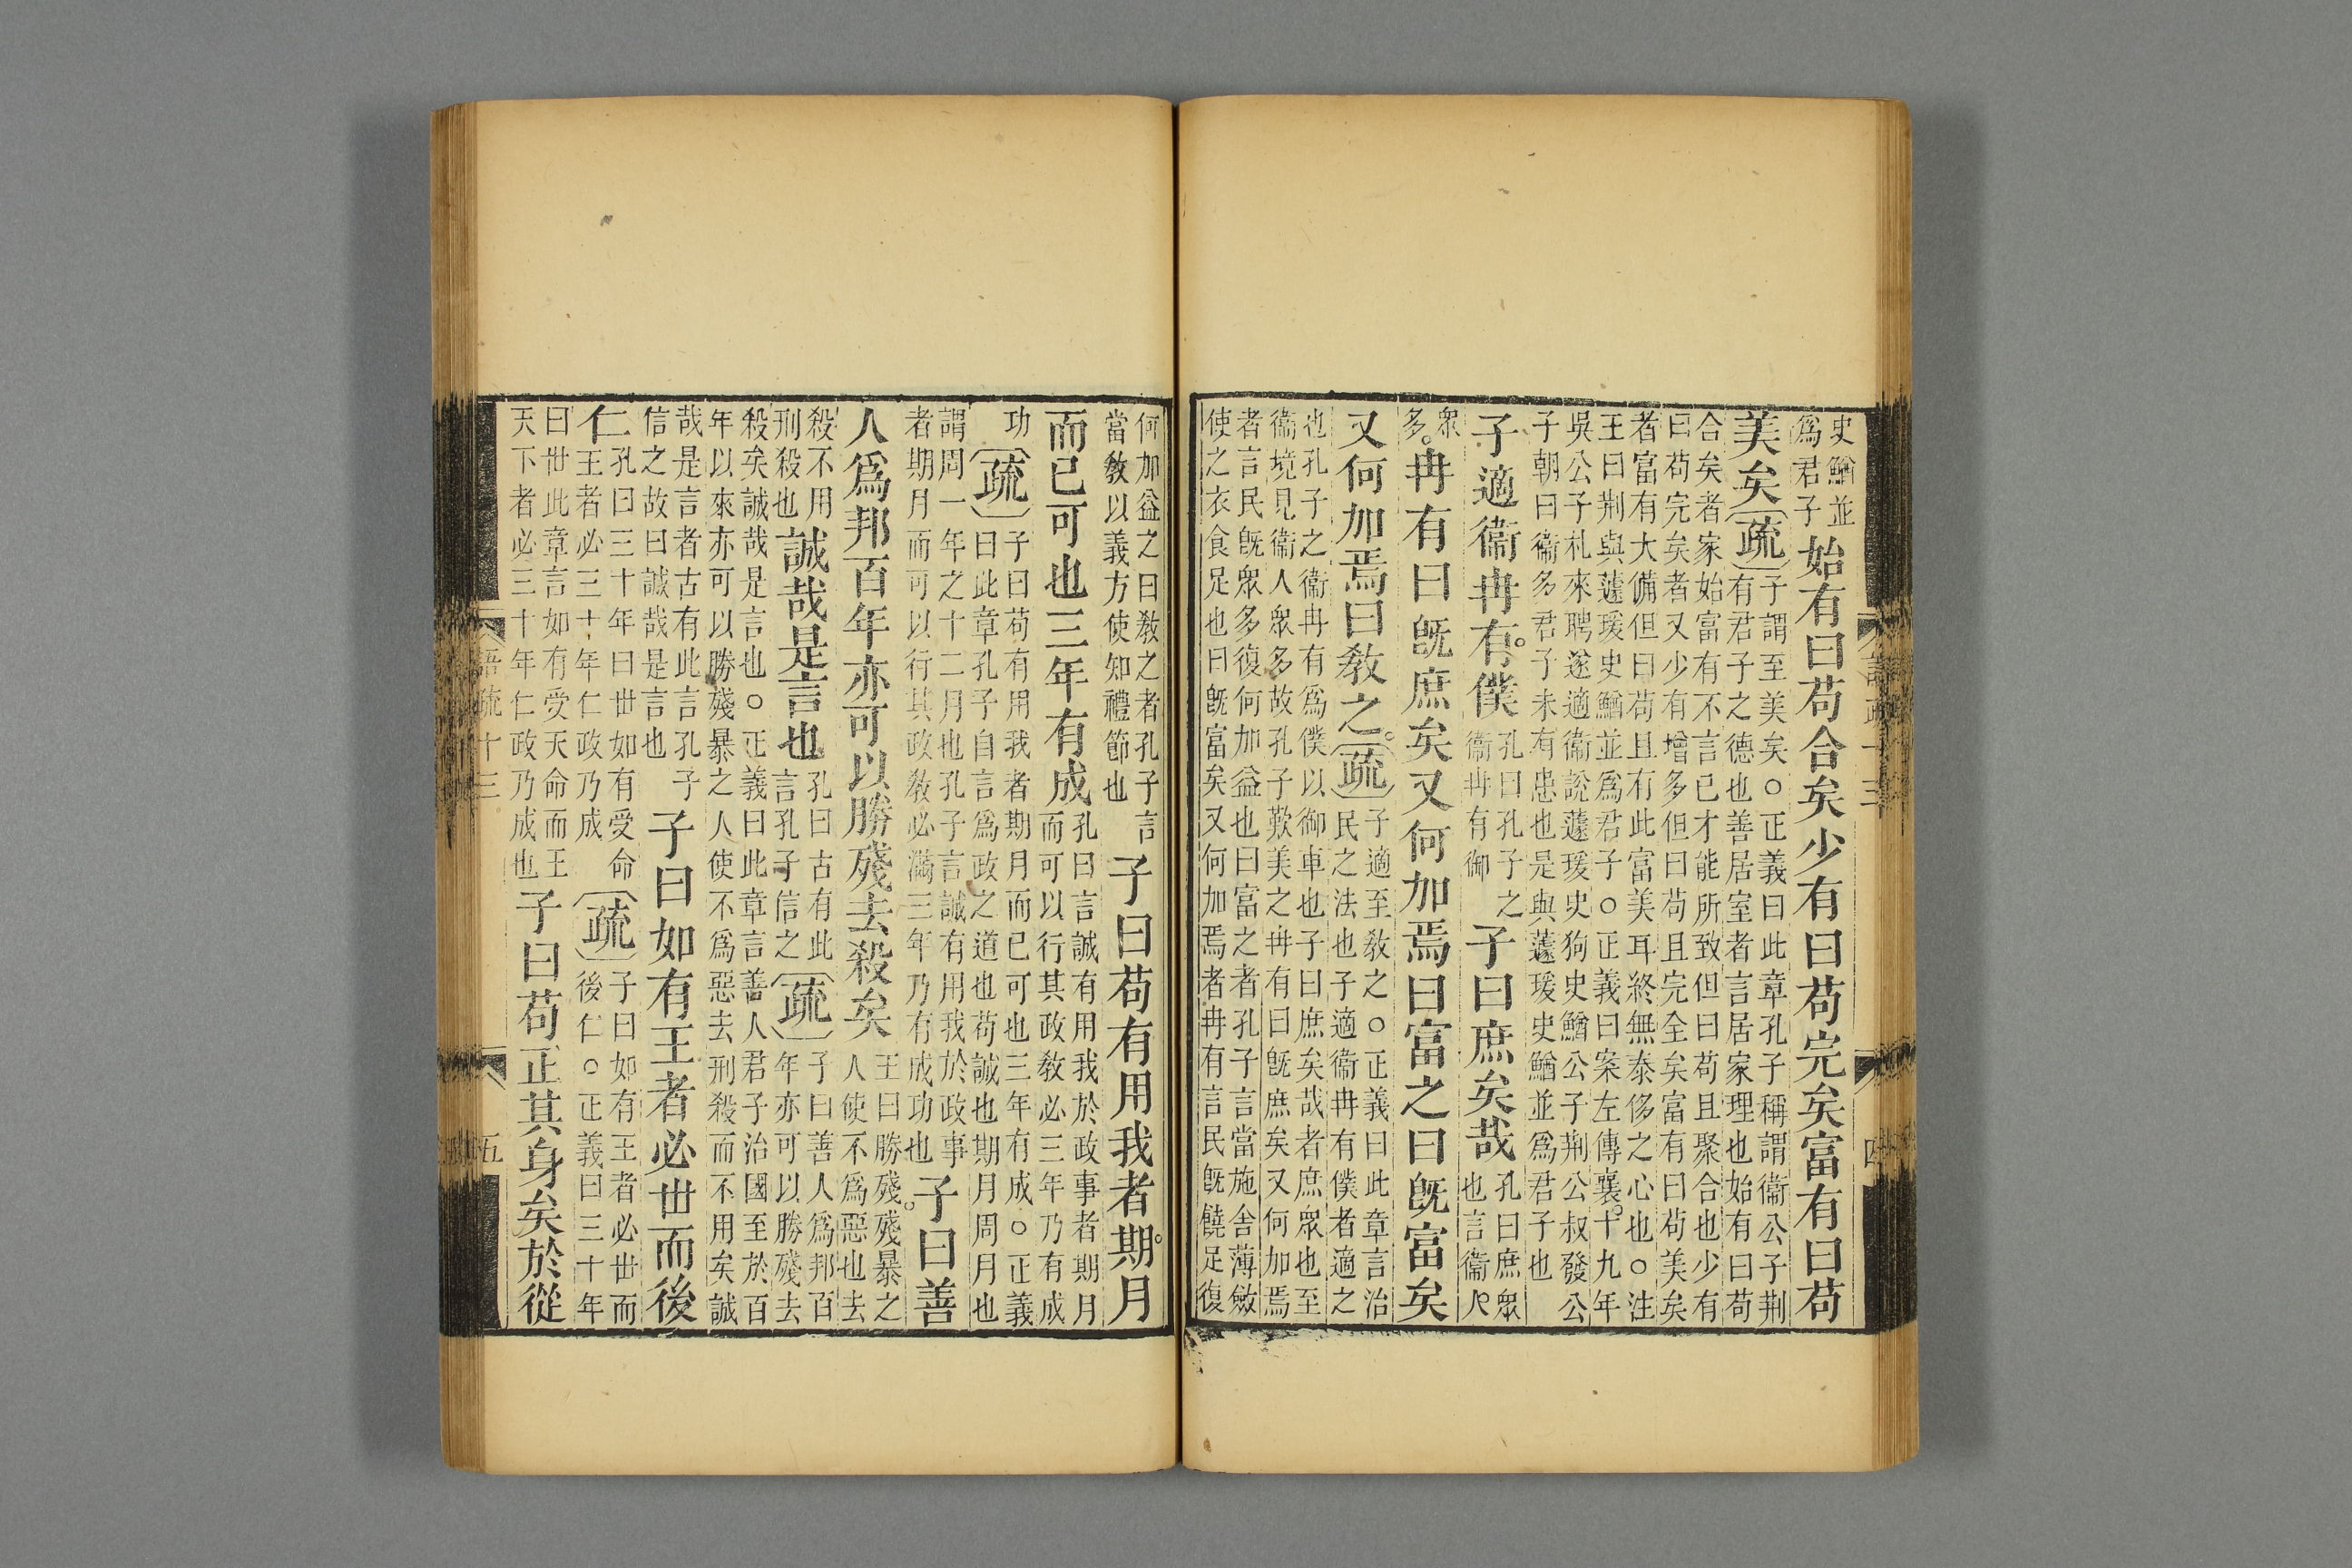 史鰌並
爲君子
始有曰苟合矣少有曰苟完矣富有曰苟
美矣疏
子謂至美矣○正義曰此章孔子稱謂衞公子荆
有君子之德也善居室者言居家理也始有曰苟
合矣者家始富有不言已才能所致但曰苟且聚合也少有
曰苟完矣者又少有增多但曰苟且完全矣富有曰苟美矣
者富有大備但曰苟且有此富美耳終無泰侈之心也○注
王曰荆與蘧瑗史鰌並爲君子○正義曰案左傳襄。十九年
吳公子札來聘遂適衞說蘧瑗史狗史鰌公子荆公叔發公
子朝曰衞多君子未有患也是與蘧瑗史鰌並爲君子也
子適衞冉有。僕
孔曰孔子之
衞冉有御
子曰庶矣哉
孔曰庶衆
也言衞人
衆
多。
冉有曰旣庶矣又何加焉曰富之曰旣富矣
又何加焉曰敎之。疏
子適至敎之○正義曰此章言治
民之法也子適衞冉有僕者適之
也孔子之衞冉有爲僕以御車也子曰庶矣哉者庶衆也至
衞境見衞人衆多故孔子歎美之冉有曰旣庶矣又何加焉
者言民旣衆多復何加益也曰富之者孔子言當施舍薄斂
使之衣食足也曰旣富矣又何加焉者冉有言民旣饒足復
何加益之曰敎之者孔子言
當敎以義方使知禮節也
子曰苟有用我者期。月
而已可也三年有成
孔曰言誠有用我於政事者期月
而可以行其政敎必三年乃有成
功
疏
子曰苟有用我者期月而已可也三年有成○正義
曰此章孔子自言爲政之道也苟誠也期月周月也
謂周一年之十二月也孔子言誠有用我於政事
者期月而可以行其政敎必滿三年乃有成功也。
子曰善
人爲邦百年亦可以勝殘去殺矣
王曰勝殘殘暴之
人使不爲惡也去
殺不用
刑殺也
誠哉是言也
孔曰古有此
言孔子信之
疏
子曰善人爲邦百
年亦可以勝殘去
殺矣誠哉是言也○正義曰此章言善人君子治國至於百
年以來亦可以勝殘暴之人使不爲惡去刑殺而不用矣誠
哉是言者古有此言孔子
信之故曰誠哉是言也
子曰如有王者必世而後
仁
孔曰三十年曰世如有受命
王者必三十年仁政乃成
疏
子曰如有王者必世而
後仁○正義曰三十年
曰世此章言如有受天命而王
天下者必三十年仁政乃成也
子曰苟正其身矣於從
語疏十三
五